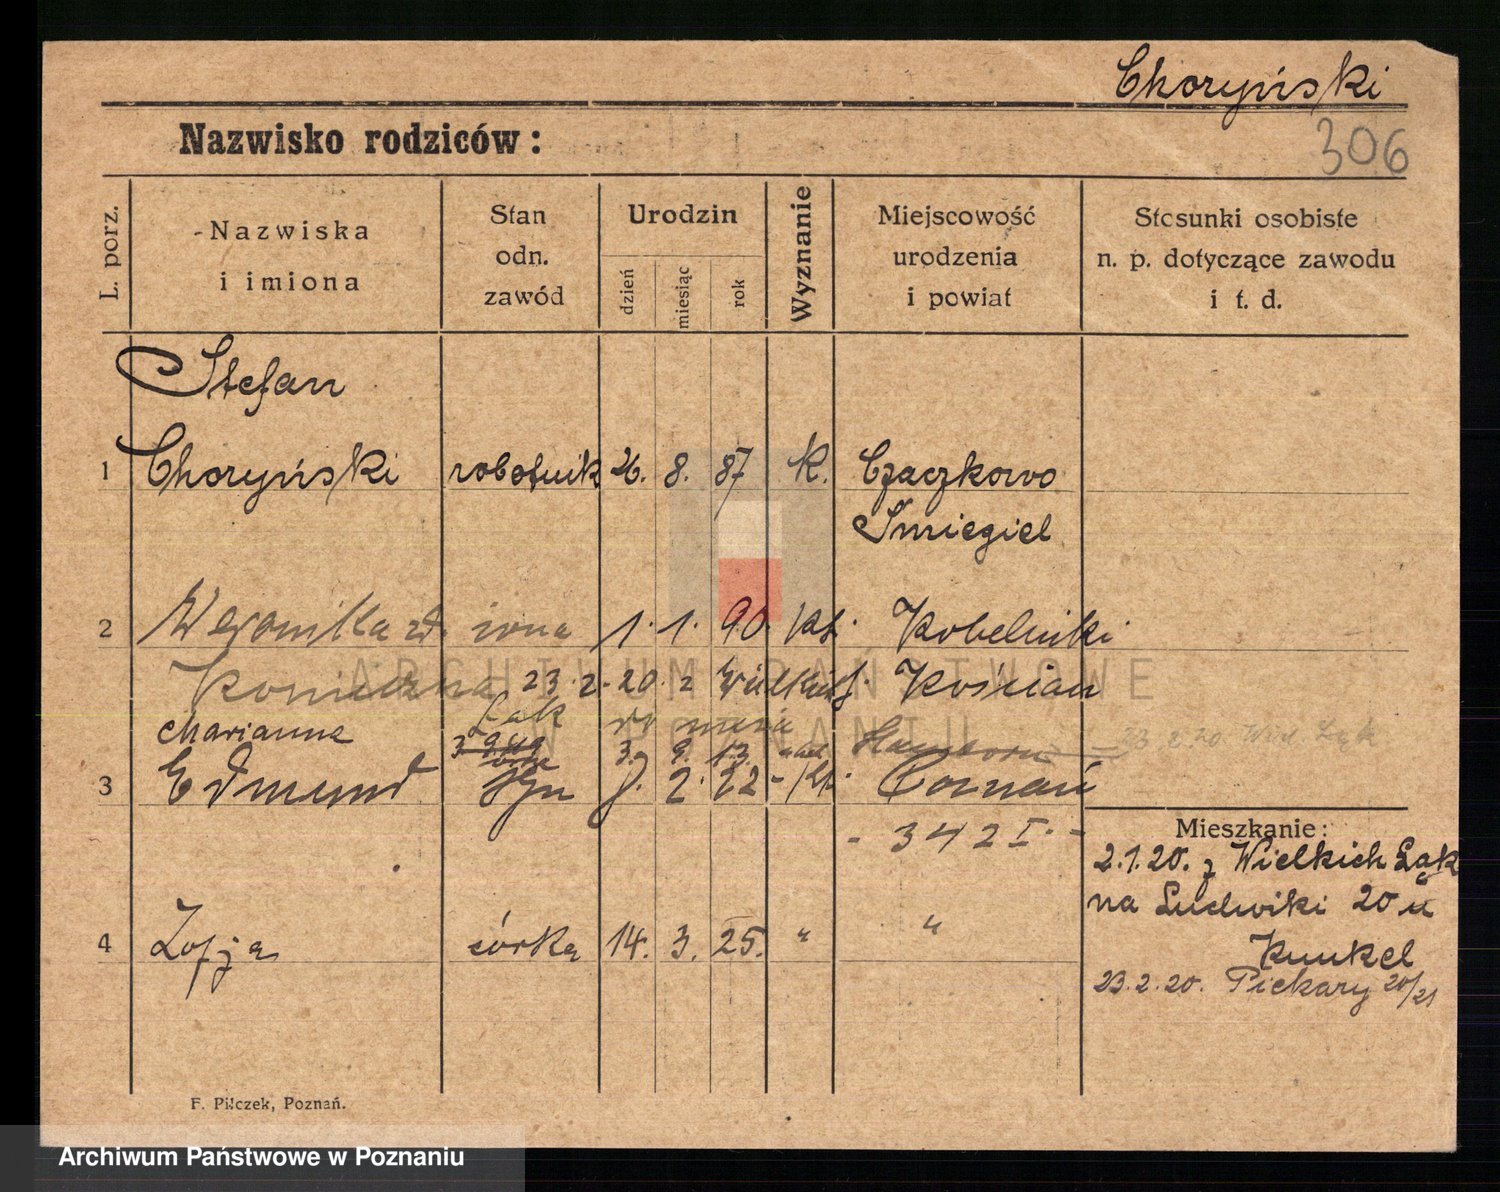 Choryński
306
Nazwisko rodziców :
L. porz.
Nazwiska i imiona
Stan odn. zawód
Urodzin
dzień miesiąc rok
Wyznanie
Miejscowość urodzenia i powiat
Stosunki osobiste n. p. dotyczące zawodu i t. d.
Stefan
1 Choryński robotnik 26. 8. 87 K. Czaczkowo
Śmiegiel
2 Weronika zd. żona 1. 1. 90. kt. Kobelniki
Konieczna 23.2.20 z Wielkich Kościan
Łąk do męża
Marianna 3. 9. 13. Hamborn
23 2 20 Wiel. Łąk
3 Edmund syn 2. 22 kt. Poznań
- 342 I. -
Mieszkanie:
2.1.20. z Wielkich Łąk
na Ludwiki 20 u
Kunkel
23.2.20. Piekary 20/21
4 Zofja córka 14. 3. 25. " "
F. Pilczek, Poznań.
ARCHIWUM PAŃSTWOWE
W POZNANIU
Archiwum Państwowe w Poznaniu